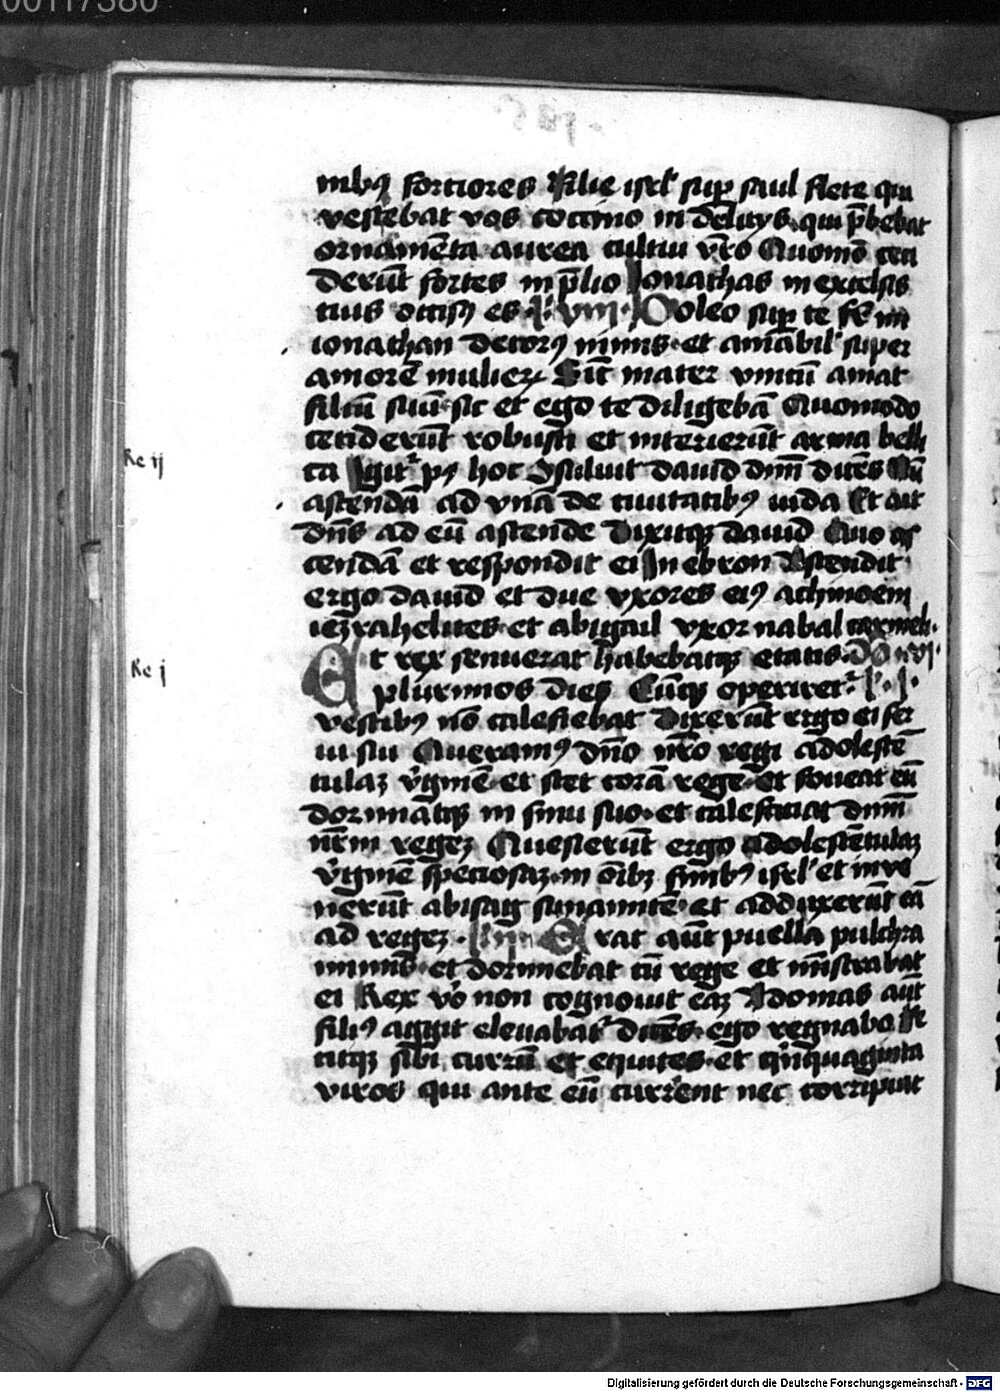 00117380
nibꝫ fortiores Filie isrl' sup saul flete qui
vestiebat vos coccino in delicijs qui p̄bebat
ornamēta aurea cultui vr̄o Quomō ceci
derūt fortes in p̄lio Jonathas in excelsis
tuis occisꝰ es l' viii Doleo sup te fr̄ mi
ionathan decorꝰ nimis et amābil' super
amorē mulierꝝ Sic̄ mater vnicū amat
filiū suū sic et ego te diligebā Quomodo
ceciderūt robusti et interierūt arma belli
ca Igit̄ pꝰ hoc ꝯsuluit dauid dnm̄ dicēs Nū
ascendā ad vnā de ciuitatibꝰ iuda Et ait
Re ij
dn̄s ad eū ascende Dixitqꝫ dauid Quo as
cendā et respondit ei In ebron Ascendit
ergo dauid et due vxores eiꝰ achinoem
iezrahelites et abigail vxor nabal carmeli
Et rex senuerat habebatqꝫ etatis Do vi
Re j
plurimos dies Cūqꝫ operiret̄ l' i
vestibꝰ nō calefiebat Dixerūt ergo ei ser
ui sui Queramꝰ dn̄o nr̄o regi adolescē
tulaꝫ v̓ginē et stet corā rege et foueat eū
dormiatqꝫ in sinu suo et calefaciat dnm̄
nr̄m regeꝫ Quesierūt ergo adolescētulaꝫ
v̓ginē speciosaꝫ in oībꝫ finibꝰ isrl' et inve
nerūt abisag sunamitē et adduxerūt eā
ad regeꝫ Erat aūt puella pulchra
nimis et dormiebat cū rege et mīstrabat
ei Rex vo̓ non cognouit eaꝫ Adonias aūt
filiꝰ aggit eleuabat̄ dicēs ego regnabo fe
citqꝫ sibi currū et equites et qͥnquaginta
viros qui ante eū currērent nec corripuit
Digitalisierung gefördert durch die Deutsche Forschungsgemeinschaft - DFG